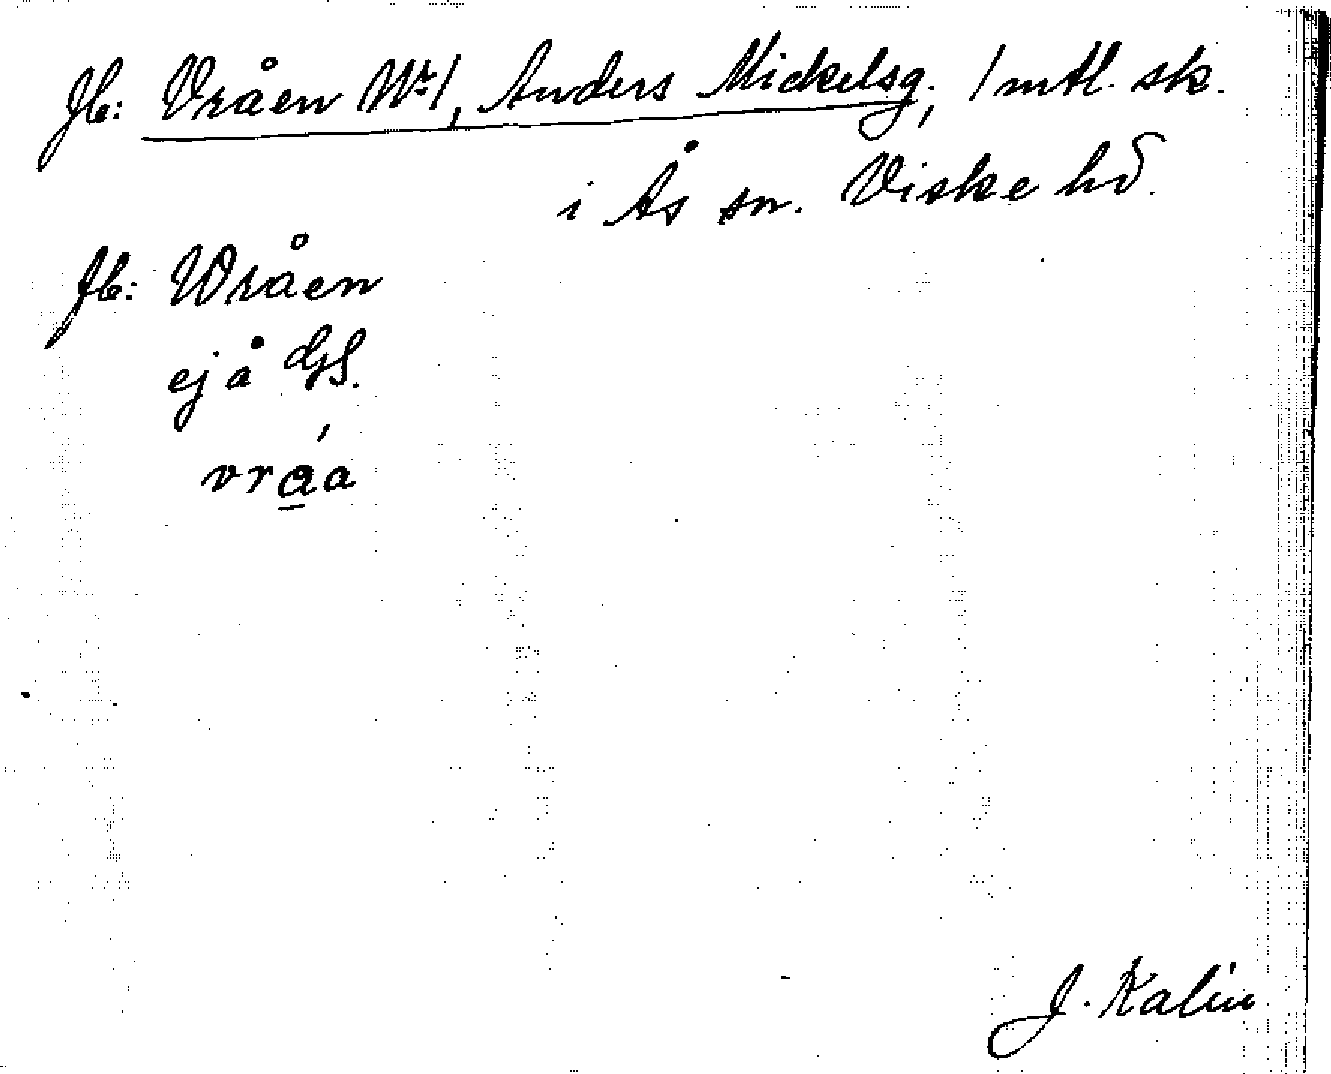 Jb: Vråen Nr 1, Anders Mickelsg., 1 mtl. sk.
i Ås sn. Viske hd.
Jb: Wråen
ej å GS.
vrá̲a
J. Kalin